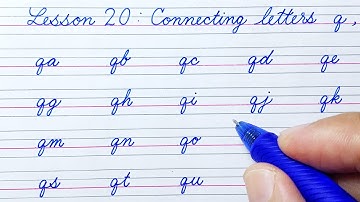 Lesson 20: Connecting letters q,
qa qb qc qd qe
qg qh qi qj qk
qm qn qo
qs qt qu